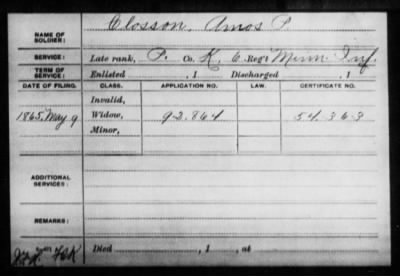 NAME OF SOLDIER: Closson, Amos P.
SERVICE: Late rank, P. Co. K, 6 Reg't Minn Inf.
TERM OF SERVICE: Enlisted , 1 Discharged , 1
DATE OF FILING. CLASS. APPLICATION NO. LAW. CERTIFICATE NO.
Invalid,
1865, May 9 Widow, 92.864 54.363
Minor,
ADDITIONAL SERVICES:
REMARKS:
Died , 1 , at